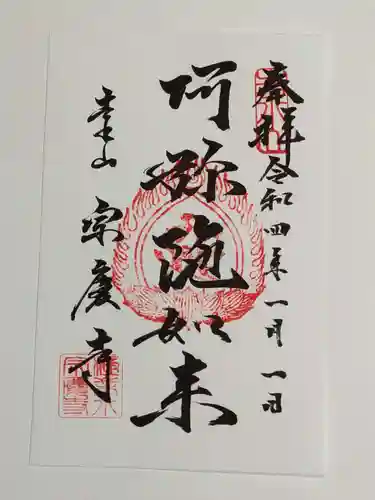 奉拝 令和四年一月一日
阿弥陀如来
宗慶寺